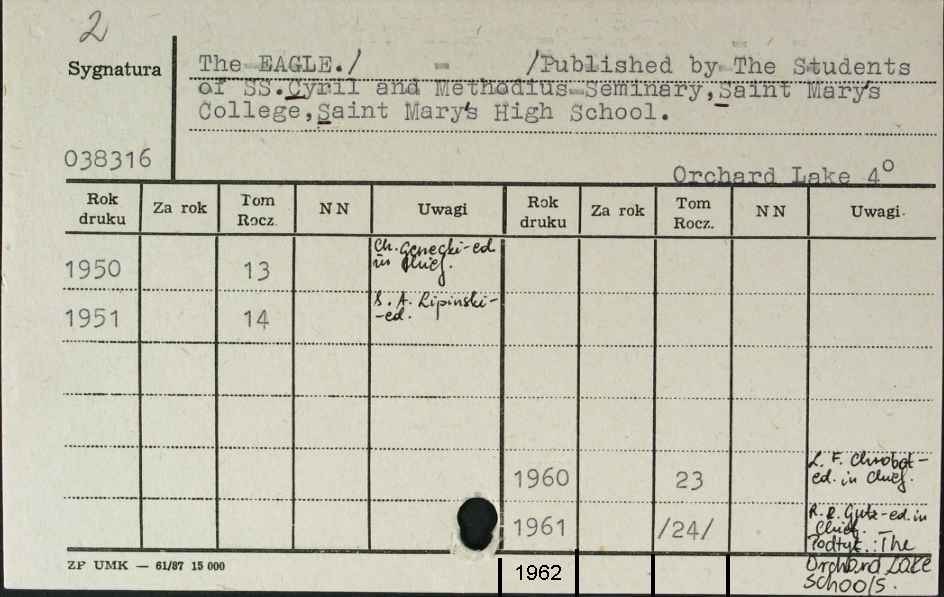 2
Sygnatura
The EAGLE./ - /Published by The Students
of SS.Cyril and Methodius Seminary,Saint Mary's
College,Saint Mary's High School.
038316
Orchard Lake 4°
Rok druku Za rok Tom Rocz. NN Uwagi Rok druku Za rok Tom Rocz. NN Uwagi.
1950 13 Ch. -ed
in Chief.
1951 14 S. A. Lipinski-
-ed.
1960 23 L. F. Chrobot-
ed. in Chief.
1961 /24/ R. R. Gutz-ed. in
Chief. -
Podtyt.: The
Orchard Lake
Schools.
1962
ZP UMK — 61/87 15 000